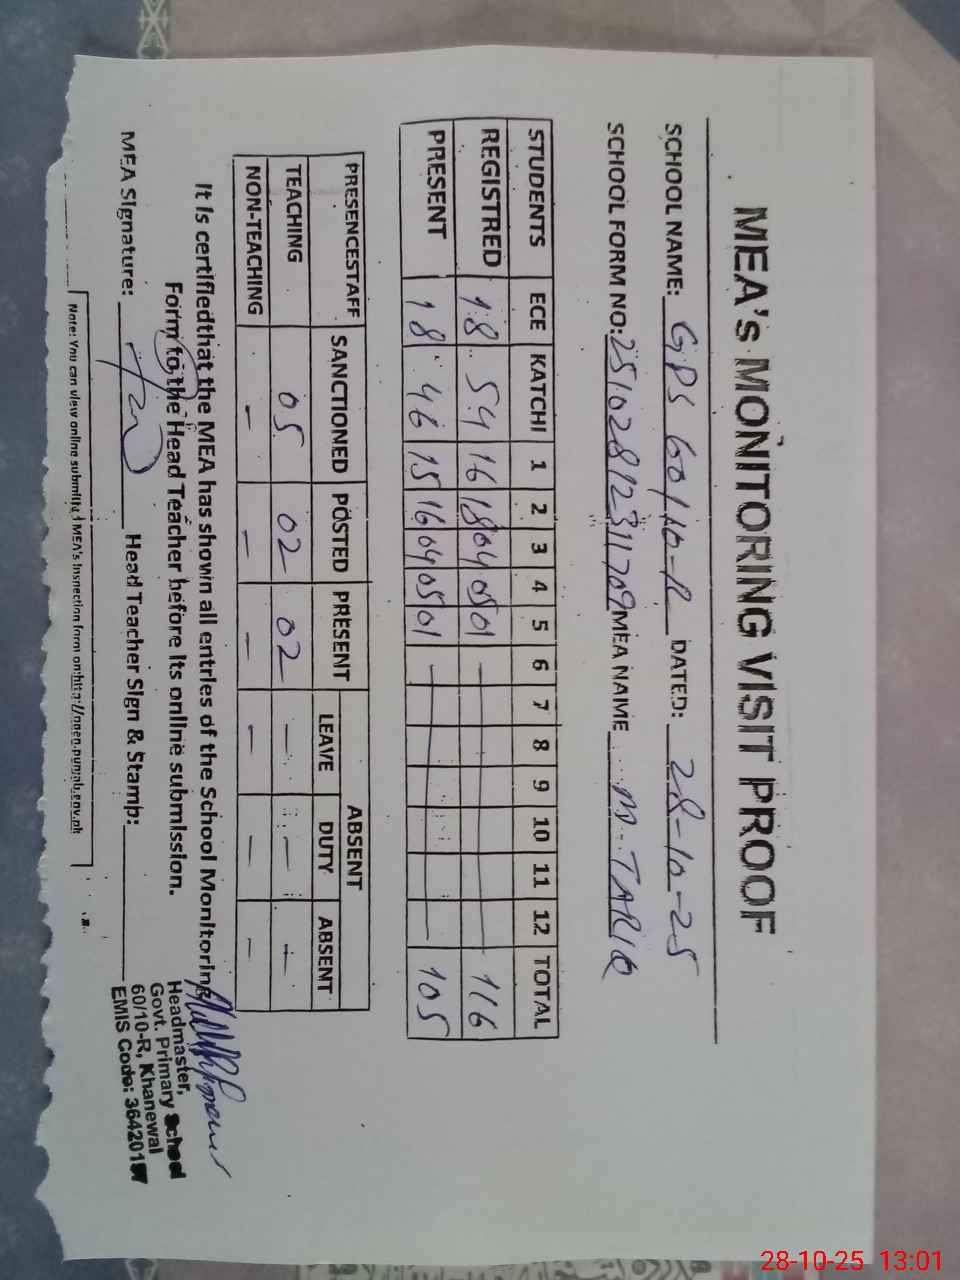 MEA's MONITORING VISIT PROOF
SCHOOL NAME: GPS 60/10-R DATED: 28-10-25
SCHOOL FORM NO: 2510281231709 MEA NAIME M. TARIQ
STUDENTS ECE KATCHI 1 2 3 4 5 6 7 8 9 10 11 12 TOTAL
REGISTRED 18 54 16 18 04 05 01 — 116
PRESENT 18 46 15 16 04 05 01 — 105
PRESENCESTAFF SANCTIONED POSTED PRESENT ABSENT
LEAVE DUTY ABSENT
TEACHING 05 02 02 — — —
NON-TEACHING — — — — — —
It is certifiedthat the MEA has shown all entries of the School Monitoring
Form to the Head Teacher before its online submission.
MEA Signature: Head Teacher Sign & Stamp:
Headmaster,
Govt. Primary School
60/10-R, Khanewal
EMIS Code:
Note: You can view online submitted MEA's Inspection form on
28-10-25 13:01